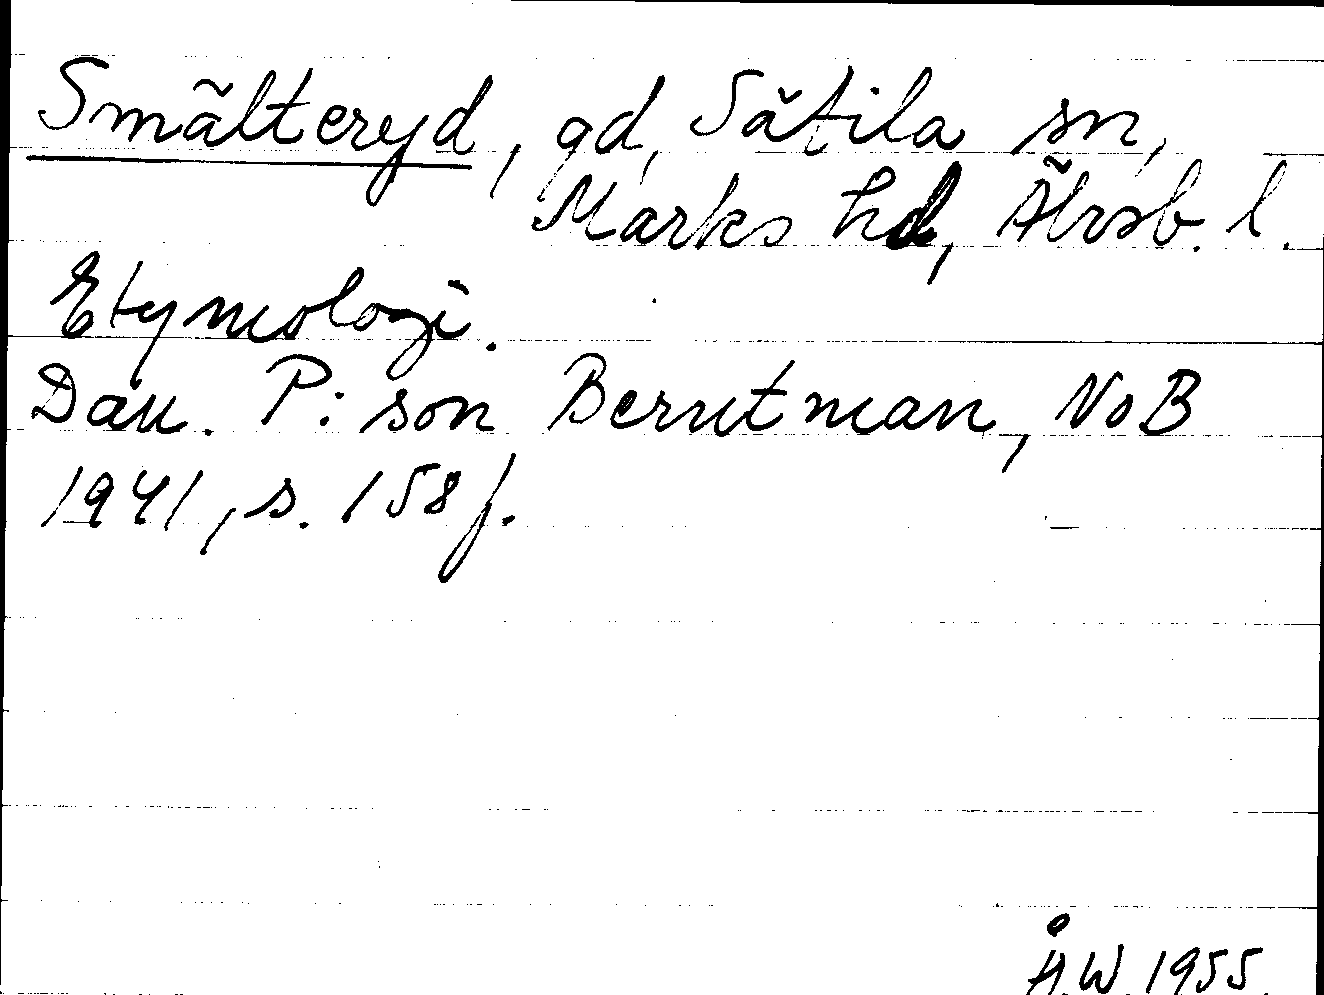 Smälteryd, gd, Sätila sn,
Marks hd, Älvsb. l.
Etymologi.
Dan. P:son Berntman, NoB
1941, s. 158 f.
Å.W. 1955.